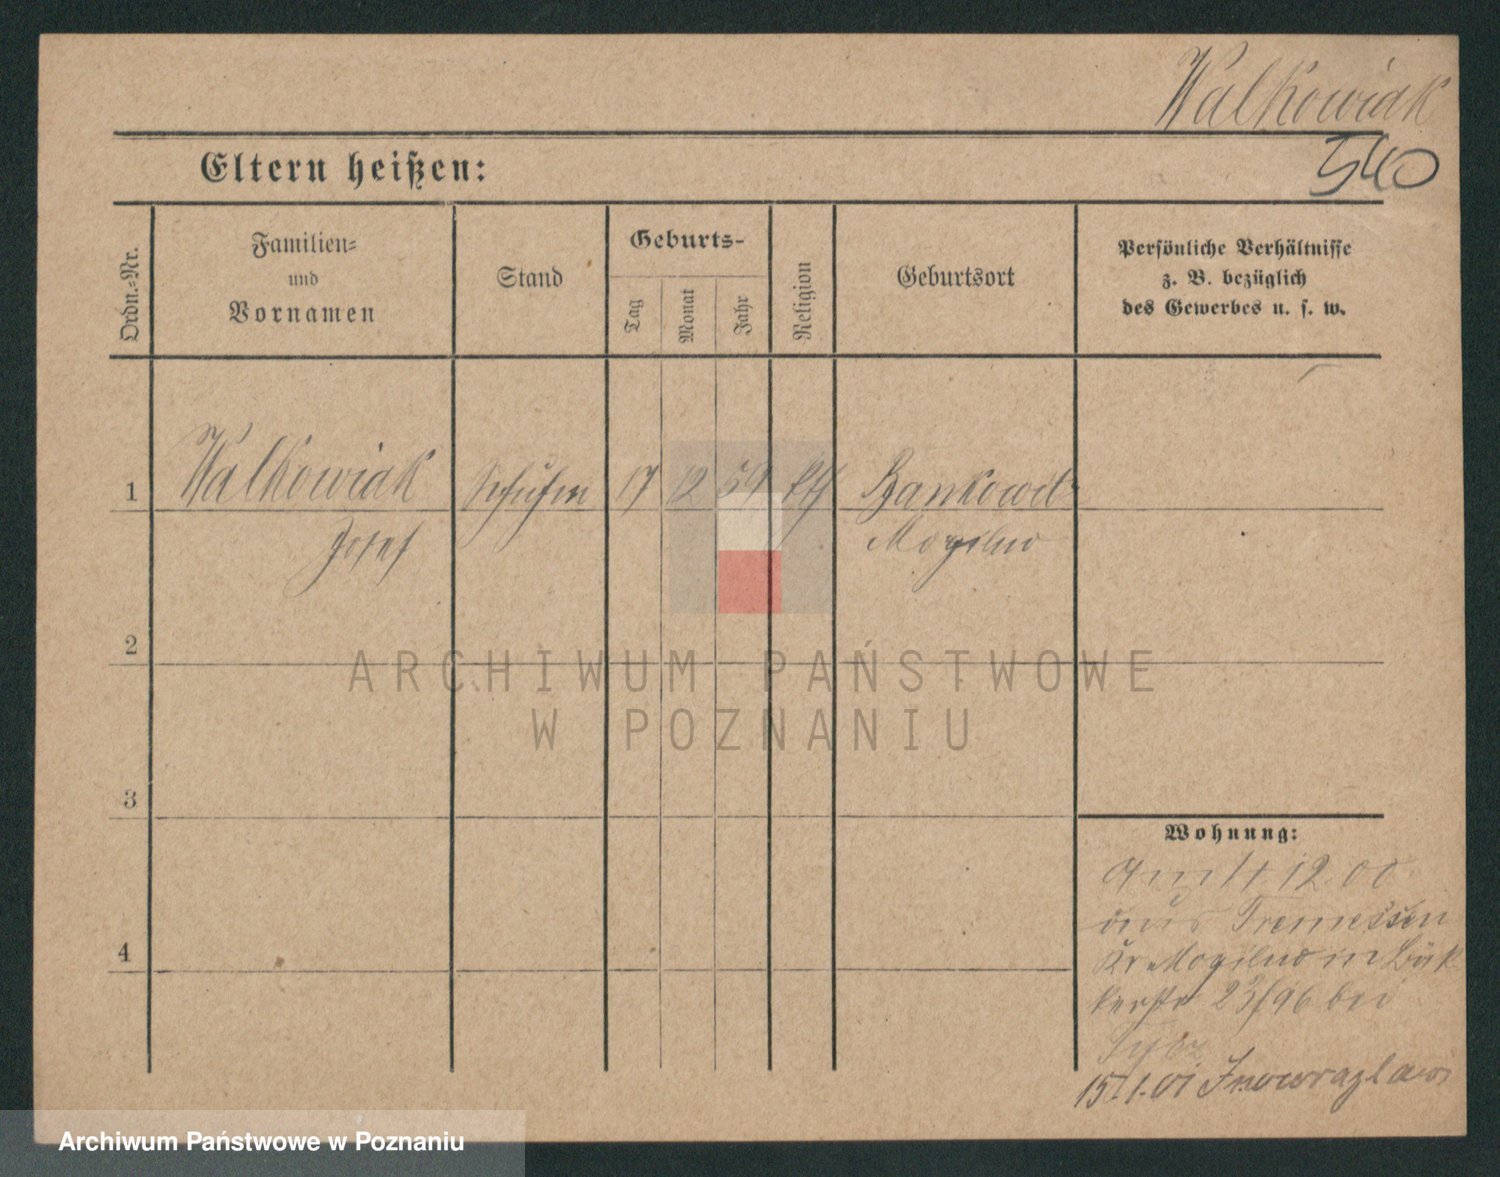 Walkowiak
540
Eltern heißen:
Ordn.=Nr.
Familien=
und
Vornamen
Stand
Geburts-
Tag
Monat
Jahr
Religion
Geburtsort
Persönliche Verhältnisse
z. B. bezüglich
des Gewerbes u. s. w.
1
Walkowiak
Josef
17
12
59
kth
Mogilno
2
3
4
Wohnung:
12.00
aus Tremessen
Kr Mogilno in
23/96 bei
15.1.01 Inowrazlaw
ARCHIWUM PAŃSTWOWE
W POZNANIU
Archiwum Państwowe w Poznaniu